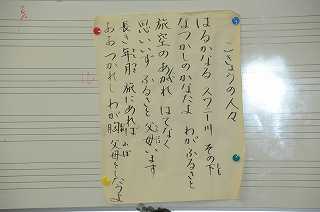 こきょうの人々
はるかなる スワニー川 その下
なつかしのかなたよ わがふるさと
旅空のあこがれ はてなく
思いいず ふるさと 父母います
長き年月 旅にあれば
おおつかれし わが胸 父母をしたうよ